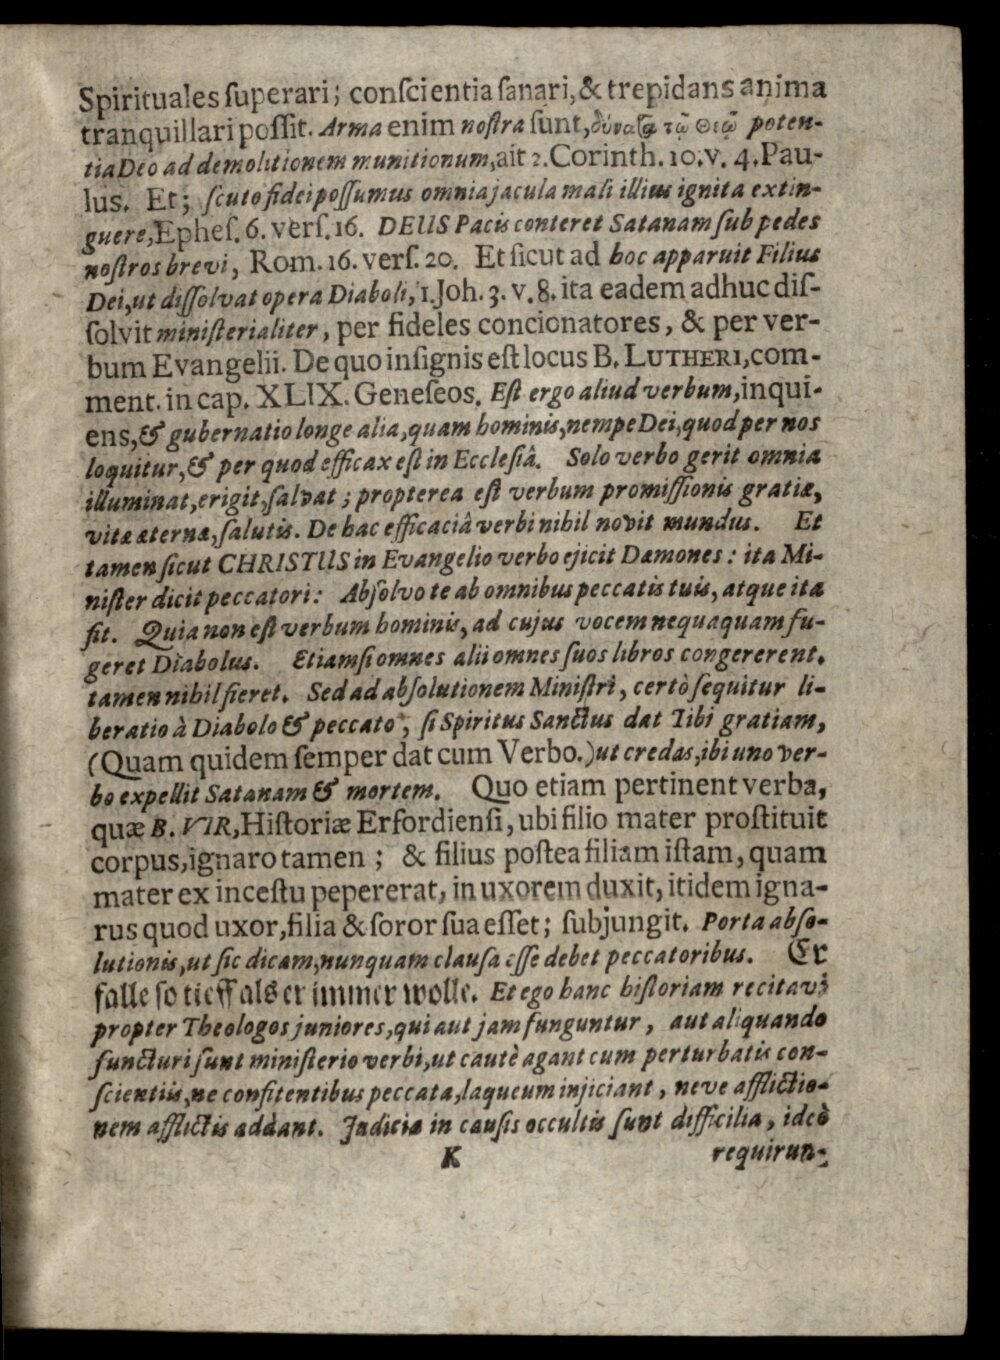 Spirituales ſuperari; conſcientia ſanari, & trepidans anima
tranquillari poſſit. Arma enim noſtra ſunt, τῷ Θεῷ poten-
tia Deo ad demolitionem munitionum, ait 2. Corinth. 10. v. 4. Pau-
lus. Et; ſcuto fidei poſſumus omnia jacula mali illius ignita extin-
guere, Epheſ. 6. verſ. 16. DEUS Pacis conteret Satanam ſub pedes
noſtros brevi, Rom. 16. verſ. 20. Et ſicut ad hoc apparuit Filius
Dei, ut diſſolvat opera Diaboli, 1. Joh. 3. v. 8. ita eadem adhuc diſ-
ſolvit miniſterialiter, per fideles concionatores, & per ver-
bum Evangelii. De quo inſignis eſt locus B. LUTHERI, com-
ment. in cap. XLIX. Geneſeos. Eſt ergo aliud verbum, inqui-
ens, & gubernatio longe alia, quam hominis, nempe Dei, quod per nos
loquitur, & per quod efficax eſt in Eccleſiâ. Solo verbo gerit omnia
illuminat, erigit, ſalvat; propterea eſt verbum promiſſionis gratiæ,
vitæ æternæ, ſalutis. De hac efficaciâ verbi nihil novit mundus. Et
tamen ſicut CHRISTUS in Evangelio verbo ejicit Dæmones: ita Mi-
niſter dicit peccatori: Abſolvo te ab omnibus peccatis tuis, atque ita
fit. Quia non eſt verbum hominis, ad cujus vocem nequaquam fu-
geret Diabolus. Etiamſi omnes alii omnes ſuos libros congererent,
tamen nihil fieret. Sed ad abſolutionem Miniſtri, certò ſequitur li-
beratio à Diabolo & peccato, ſi Spiritus Sanctus dat Tibi gratiam,
(Quam quidem ſemper dat cum Verbo.) ut credas, ibi uno ver-
bo expellit Satanam & mortem. Quo etiam pertinent verba,
quæ B. VIR, Hiſtoriæ Erfordienſi, ubi filio mater proſtituit
corpus, ignaro tamen; & filius poſtea filiam iſtam, quam
mater ex inceſtu pepererat, in uxorem duxit, itidem igna-
rus quod uxor, filia & ſoror ſua eſſet; ſubjungit. Porta abſo-
lutionis, ut ſic dicam, nunquam clauſa eſſe debet peccatoribus. Er
falle ſo tieff als er immer wolle. Et ego hanc hiſtoriam recitavi
propter Theologos juniores, qui aut jam funguntur, aut aliquando
functuri ſunt miniſterio verbi, ut cautè agant cum perturbatis con-
ſcientiis, ne confitentibus peccata, laqueum injiciant, neve afflictio-
nem afflictis addant. Judicia in cauſis occultis ſunt difficilia, ideò
K requirun-